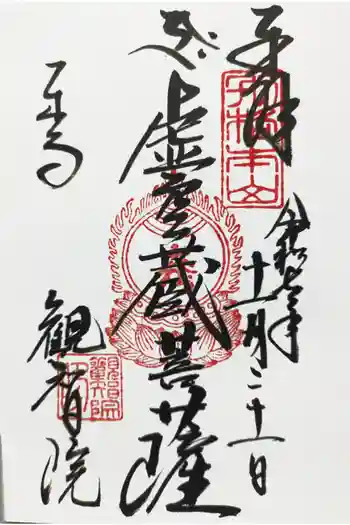 奉拝
令和七年
十一月二十一日
虚空蔵菩薩
東寺
觀智院